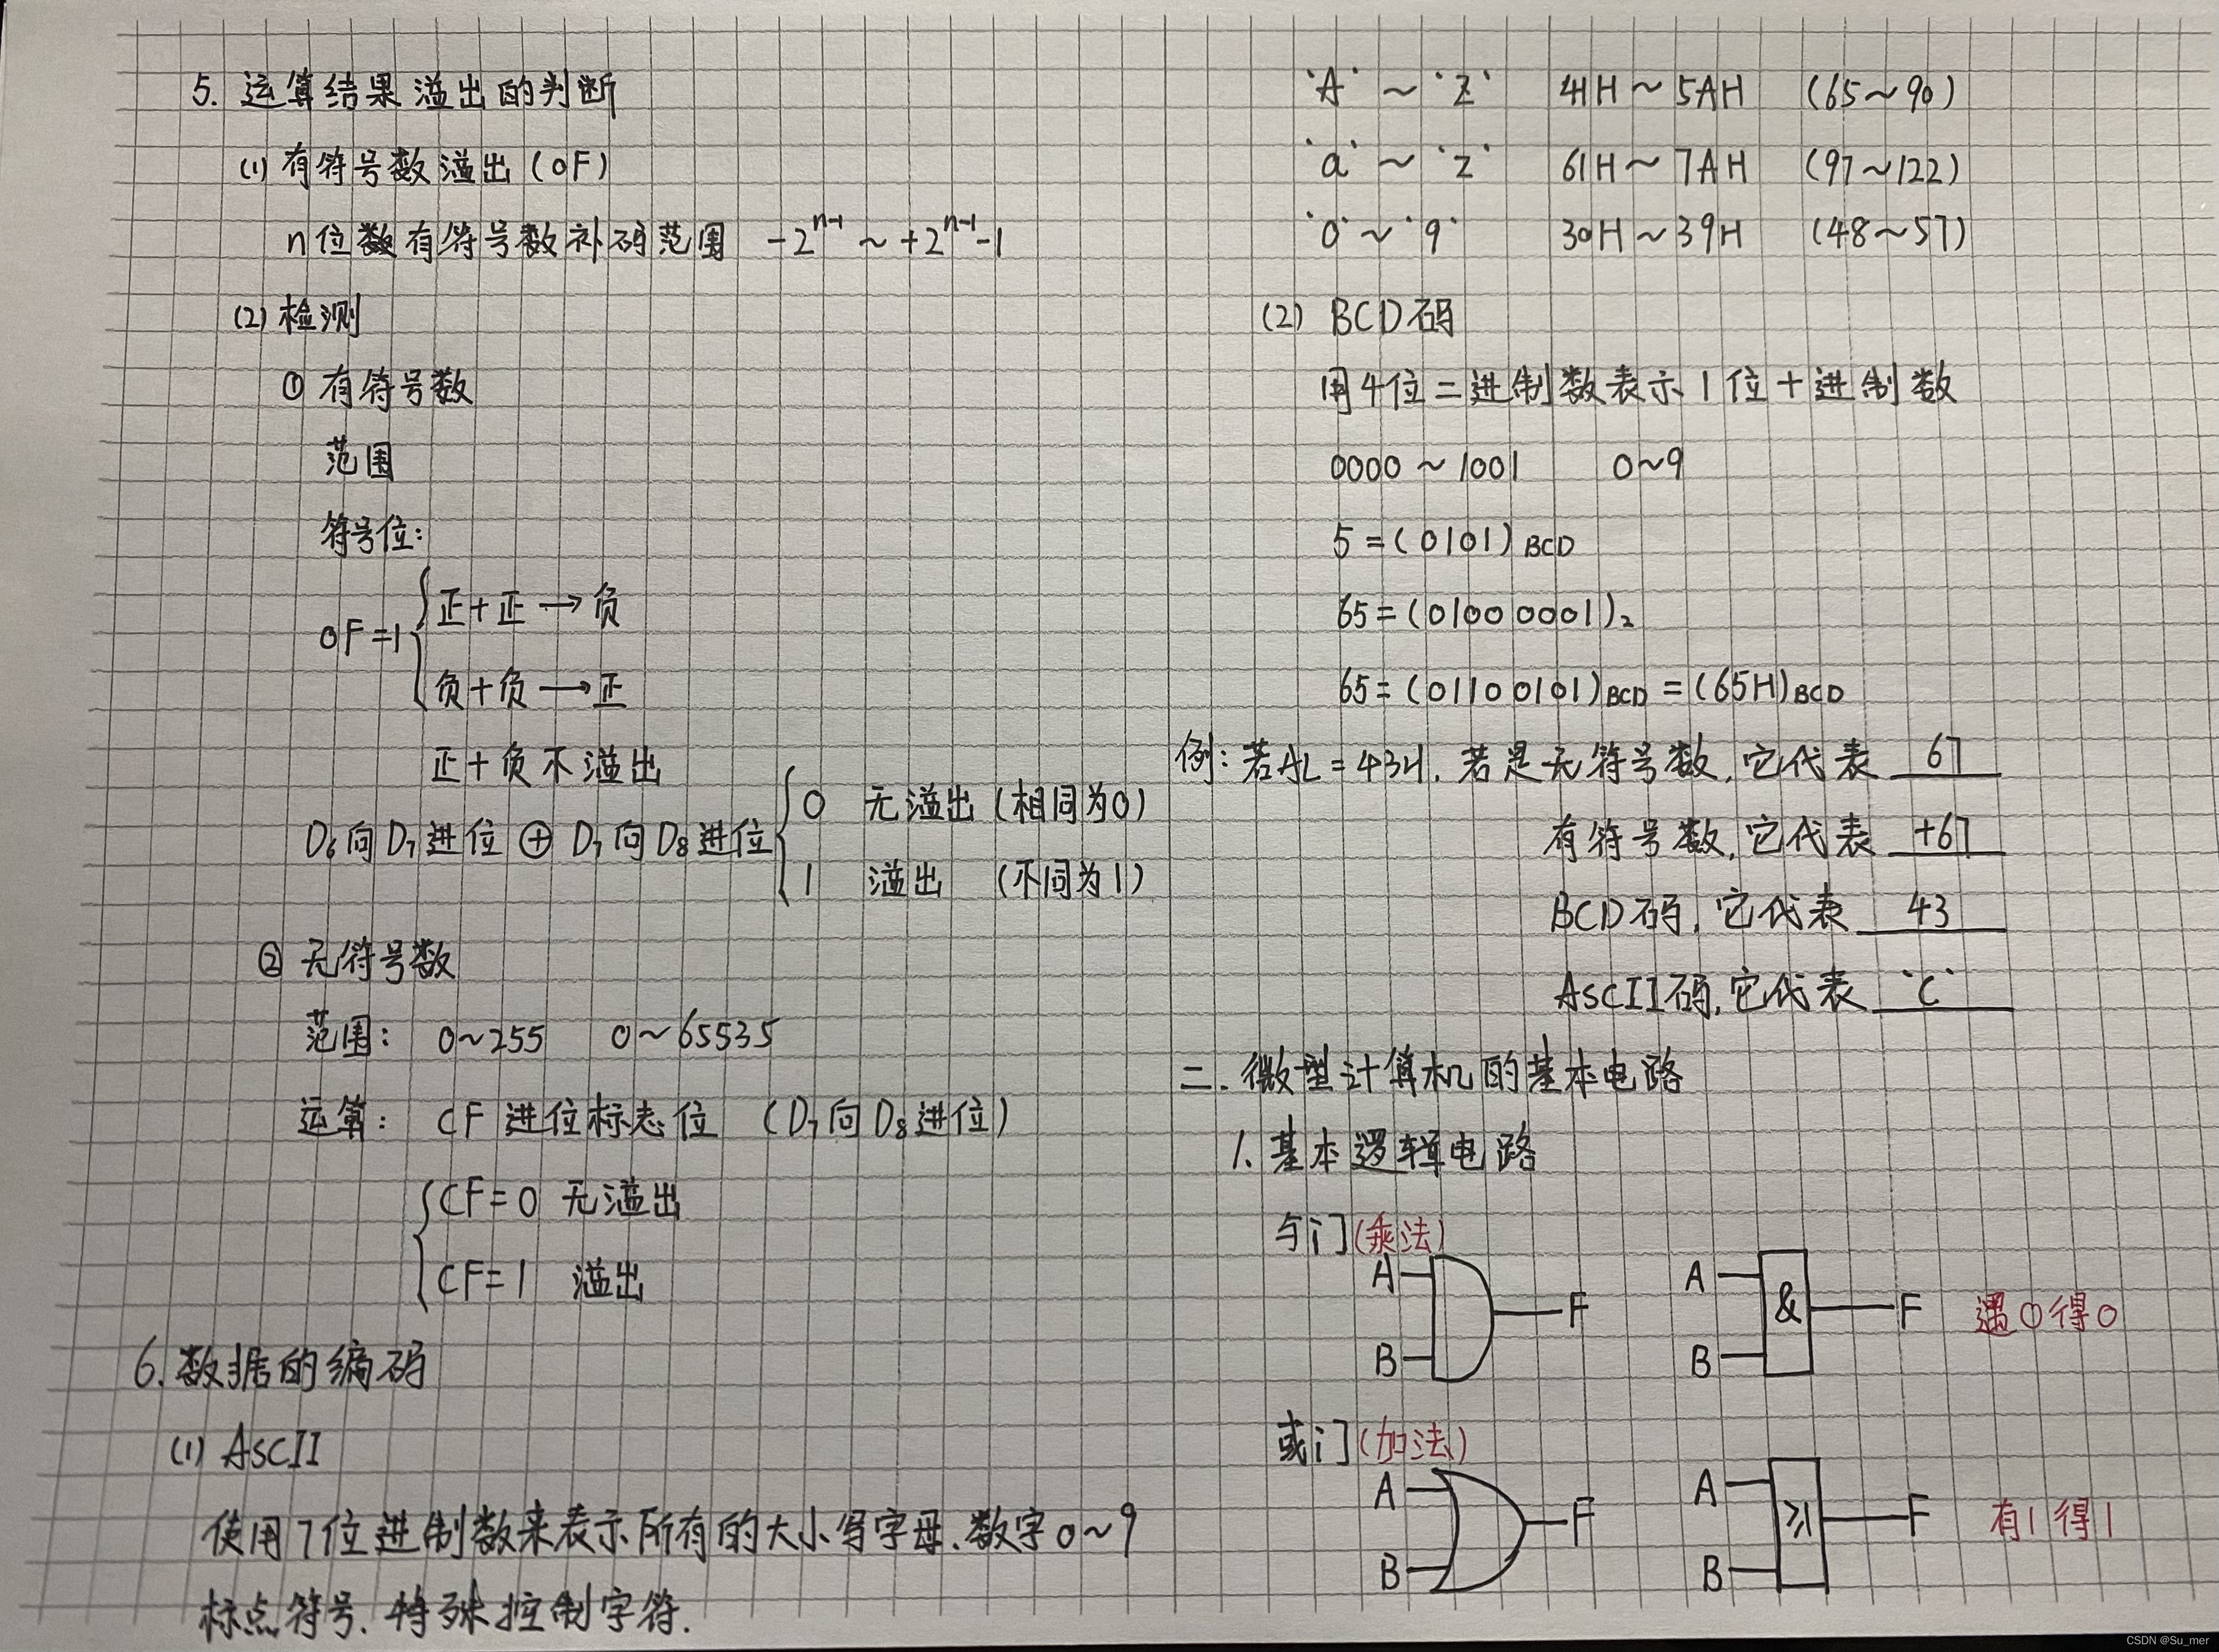 5. 运算结果溢出的判断
(1) 有符号数溢出(OF)
n位数有符号数补码范围 -2^{n-1} ~ +2^{n-1}-1
(2) 检测
① 有符号数
范围
符号位:
OF=1 { 正+正 → 负
负+负 → 正
正+负不溢出
D₆向D₇进位 ⊕ D₇向D₈进位 { 0 无溢出 (相同为0)
1 溢出 (不同为1)
② 无符号数
范围: 0~255 0~65535
运算: CF 进位标志位 (D₇向D₈进位)
{ CF=0 无溢出
CF=1 溢出
6. 数据的编码
(1) ASCII
使用7位进制数来表示所有的大小写字母、数字0~9
标点符号、特殊控制字符.
'A' ~ 'Z' 41H ~ 5AH (65~90)
'a' ~ 'z' 61H ~ 7AH (97~122)
'0' ~ '9' 30H ~ 39H (48~57)
(2) BCD码
用4位二进制数表示1位十进制数
0000 ~ 1001 0~9
5 = (0101)BCD
65 = (0100 0001)₂
65 = (0110 0101)BCD = (65H)BCD
例: 若AL = 43H, 若是无符号数, 它代表 67
有符号数, 它代表 +67
BCD码, 它代表 43
ASCII码, 它代表 'C'
二. 微型计算机的基本电路
1. 基本逻辑电路
与门(乘法)
A
B
F
A
B
&
F
遇0得0
或门(加法)
A
B
F
A
B
≥1
F
有1得1
CSDN @Su_mer